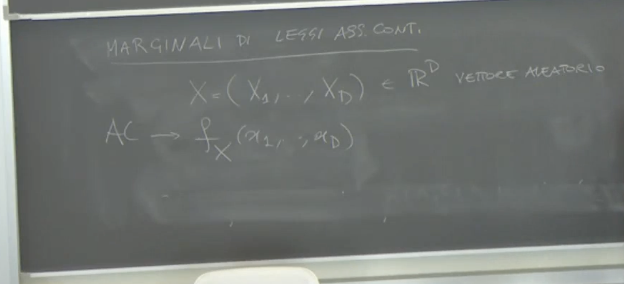 MARGINALI DI LEGGI ASS. CONT.
X = (X₁, .., X_D) ∈ ℝ^D VETTORE ALEATORIO
AC → f_X (x₁, .., x_D)